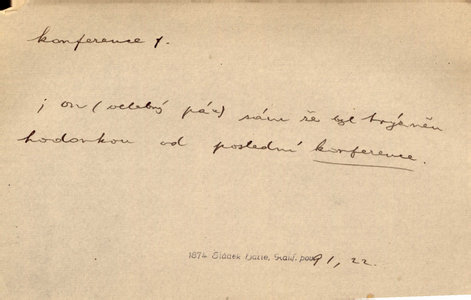 konference f.
; on (velebný pán) sám že byl trýzněn
hodonkou od poslední konference.
1874 Sládek 91, 22.